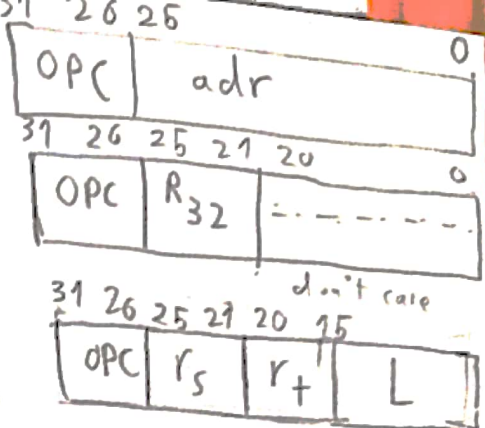 31 26 25 0
OPC adr
31 26 25 21 20 0
OPC R32
don't care
31 26 25 21 20 15
OPC rs rt L